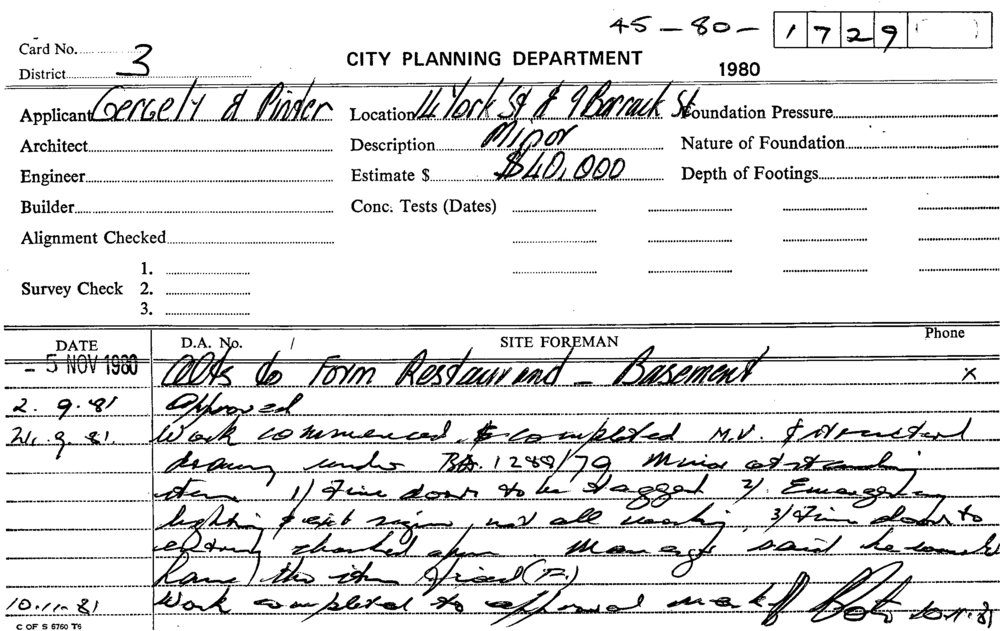 45-80- 1729
Card No. 3
District
CITY PLANNING DEPARTMENT
1980
Applicant Gergely & Pinter
Location 14 York St & 9 Barrack St
Foundation Pressure
Architect
Description Minor
Nature of Foundation
Engineer
Estimate $ $40,000
Depth of Footings
Builder
Conc. Tests (Dates)
Alignment Checked
1.
Survey Check 2.
3.
DATE D.A. No. / SITE FOREMAN Phone
- 5 NOV 1980 Alts to Form Restaurant - Basement x
2.9.81 Approved
21.9.81. Work commenced & completed M.V. & structural
drawing under BA. 1288/79 Minor outstanding
items 1) Fire doors to be tagged 2/ Emergency
lighting & exit signs, not all working, 3/ Fire door to
chocked open Manager said he would
have the item fixed
10.11.81 Work completed to approved 10.11.81
C OF S 6760 T6